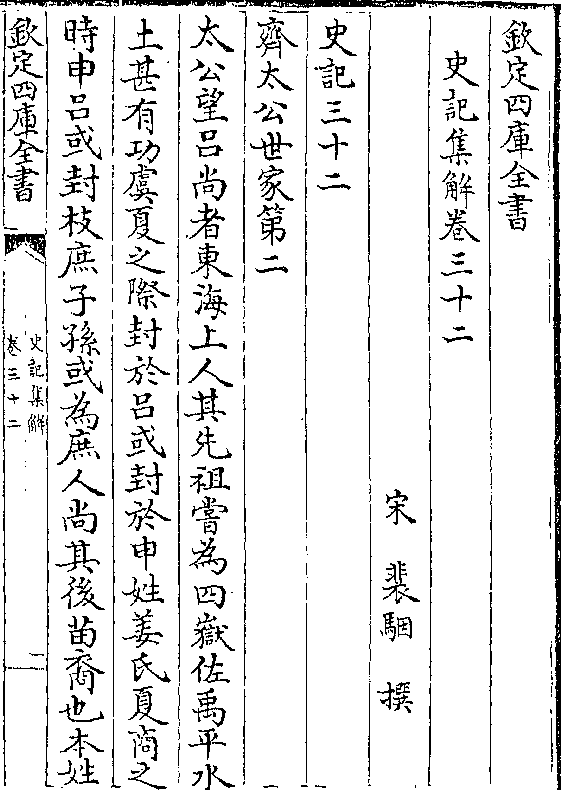 欽定四庫全書
史記集解卷三十二
宋 裴駰 撰
史記三十二
齊太公世家第二
太公望吕尚者東海上人其先祖嘗為四嶽佐禹平水
土甚有功虞夏之際封於吕或封於申姓姜氏夏商之
時申吕或封枝庶子孫或為庶人尚其後苗裔也本姓
欽定四庫全書
史記集解
卷三十二
一